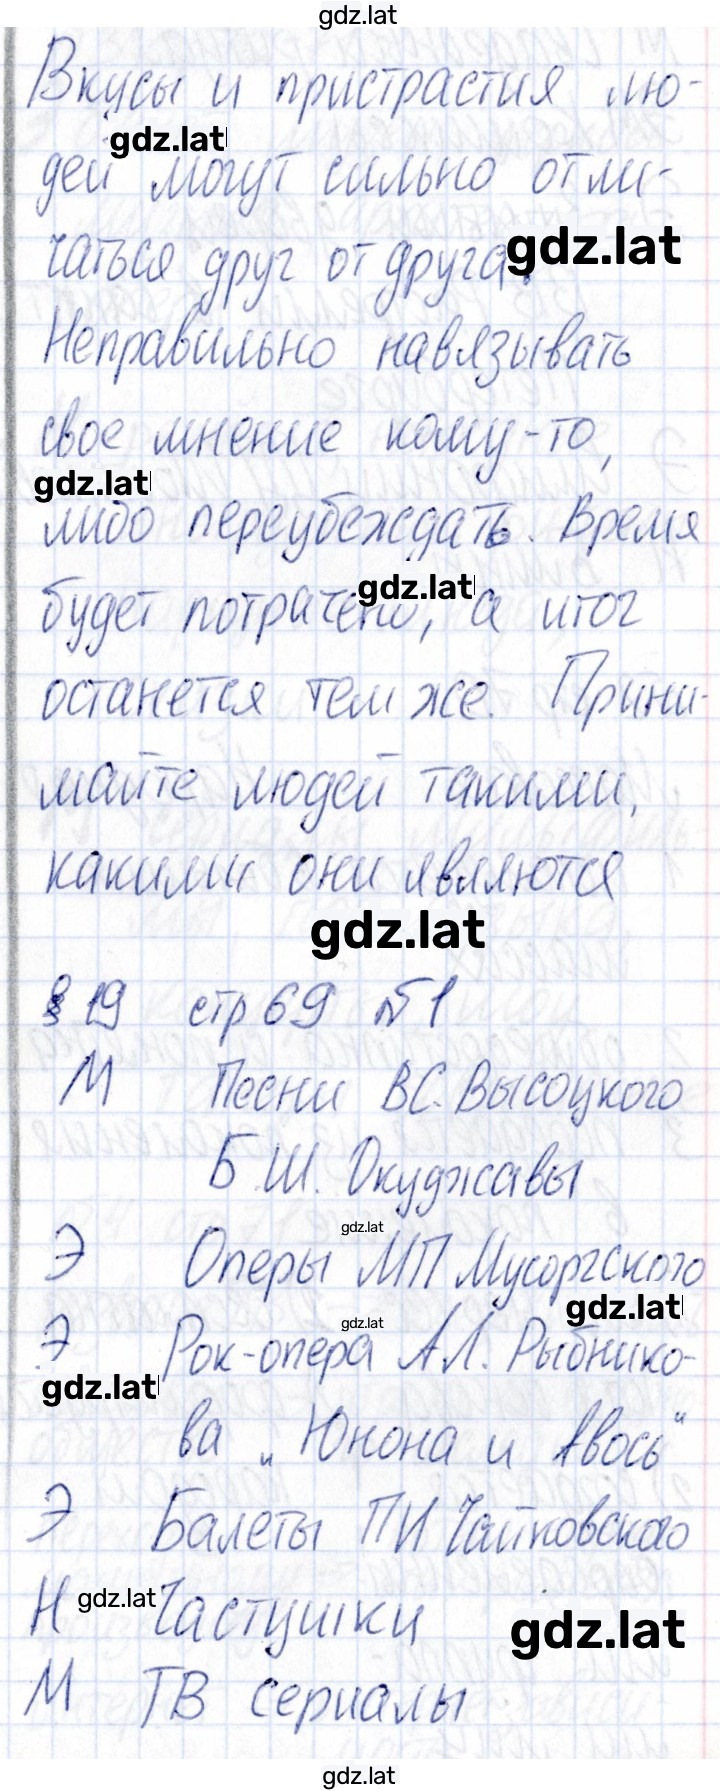 gdz.lat
Вкусы и пристрастия лю-
gdz.lat
дей могут сильно отли-
чаться друг от друга.
gdz.lat
Неправильно навязывать
свое мнение кому-то,
gdz.lat
либо переубеждать. Время
gdz.lat
будет потрачено, а итог
останется тем же. Прини-
майте людей такими,
какими они являются
gdz.lat
§ 19 стр 69 №1
М Песни В.С. Высоцкого
Б.Ш. Окуджавы
gdz.lat
Э Оперы МП Мусоргского
gdz.lat
gdz.lat
Э Рок-опера А.Л. Рыбнико-
gdz.lat
ва „Юнона и Авось"
Э Балеты ПИ Чайковского
Н gdz.lat Частушки
gdz.lat
М ТВ сериалы
gdz.lat